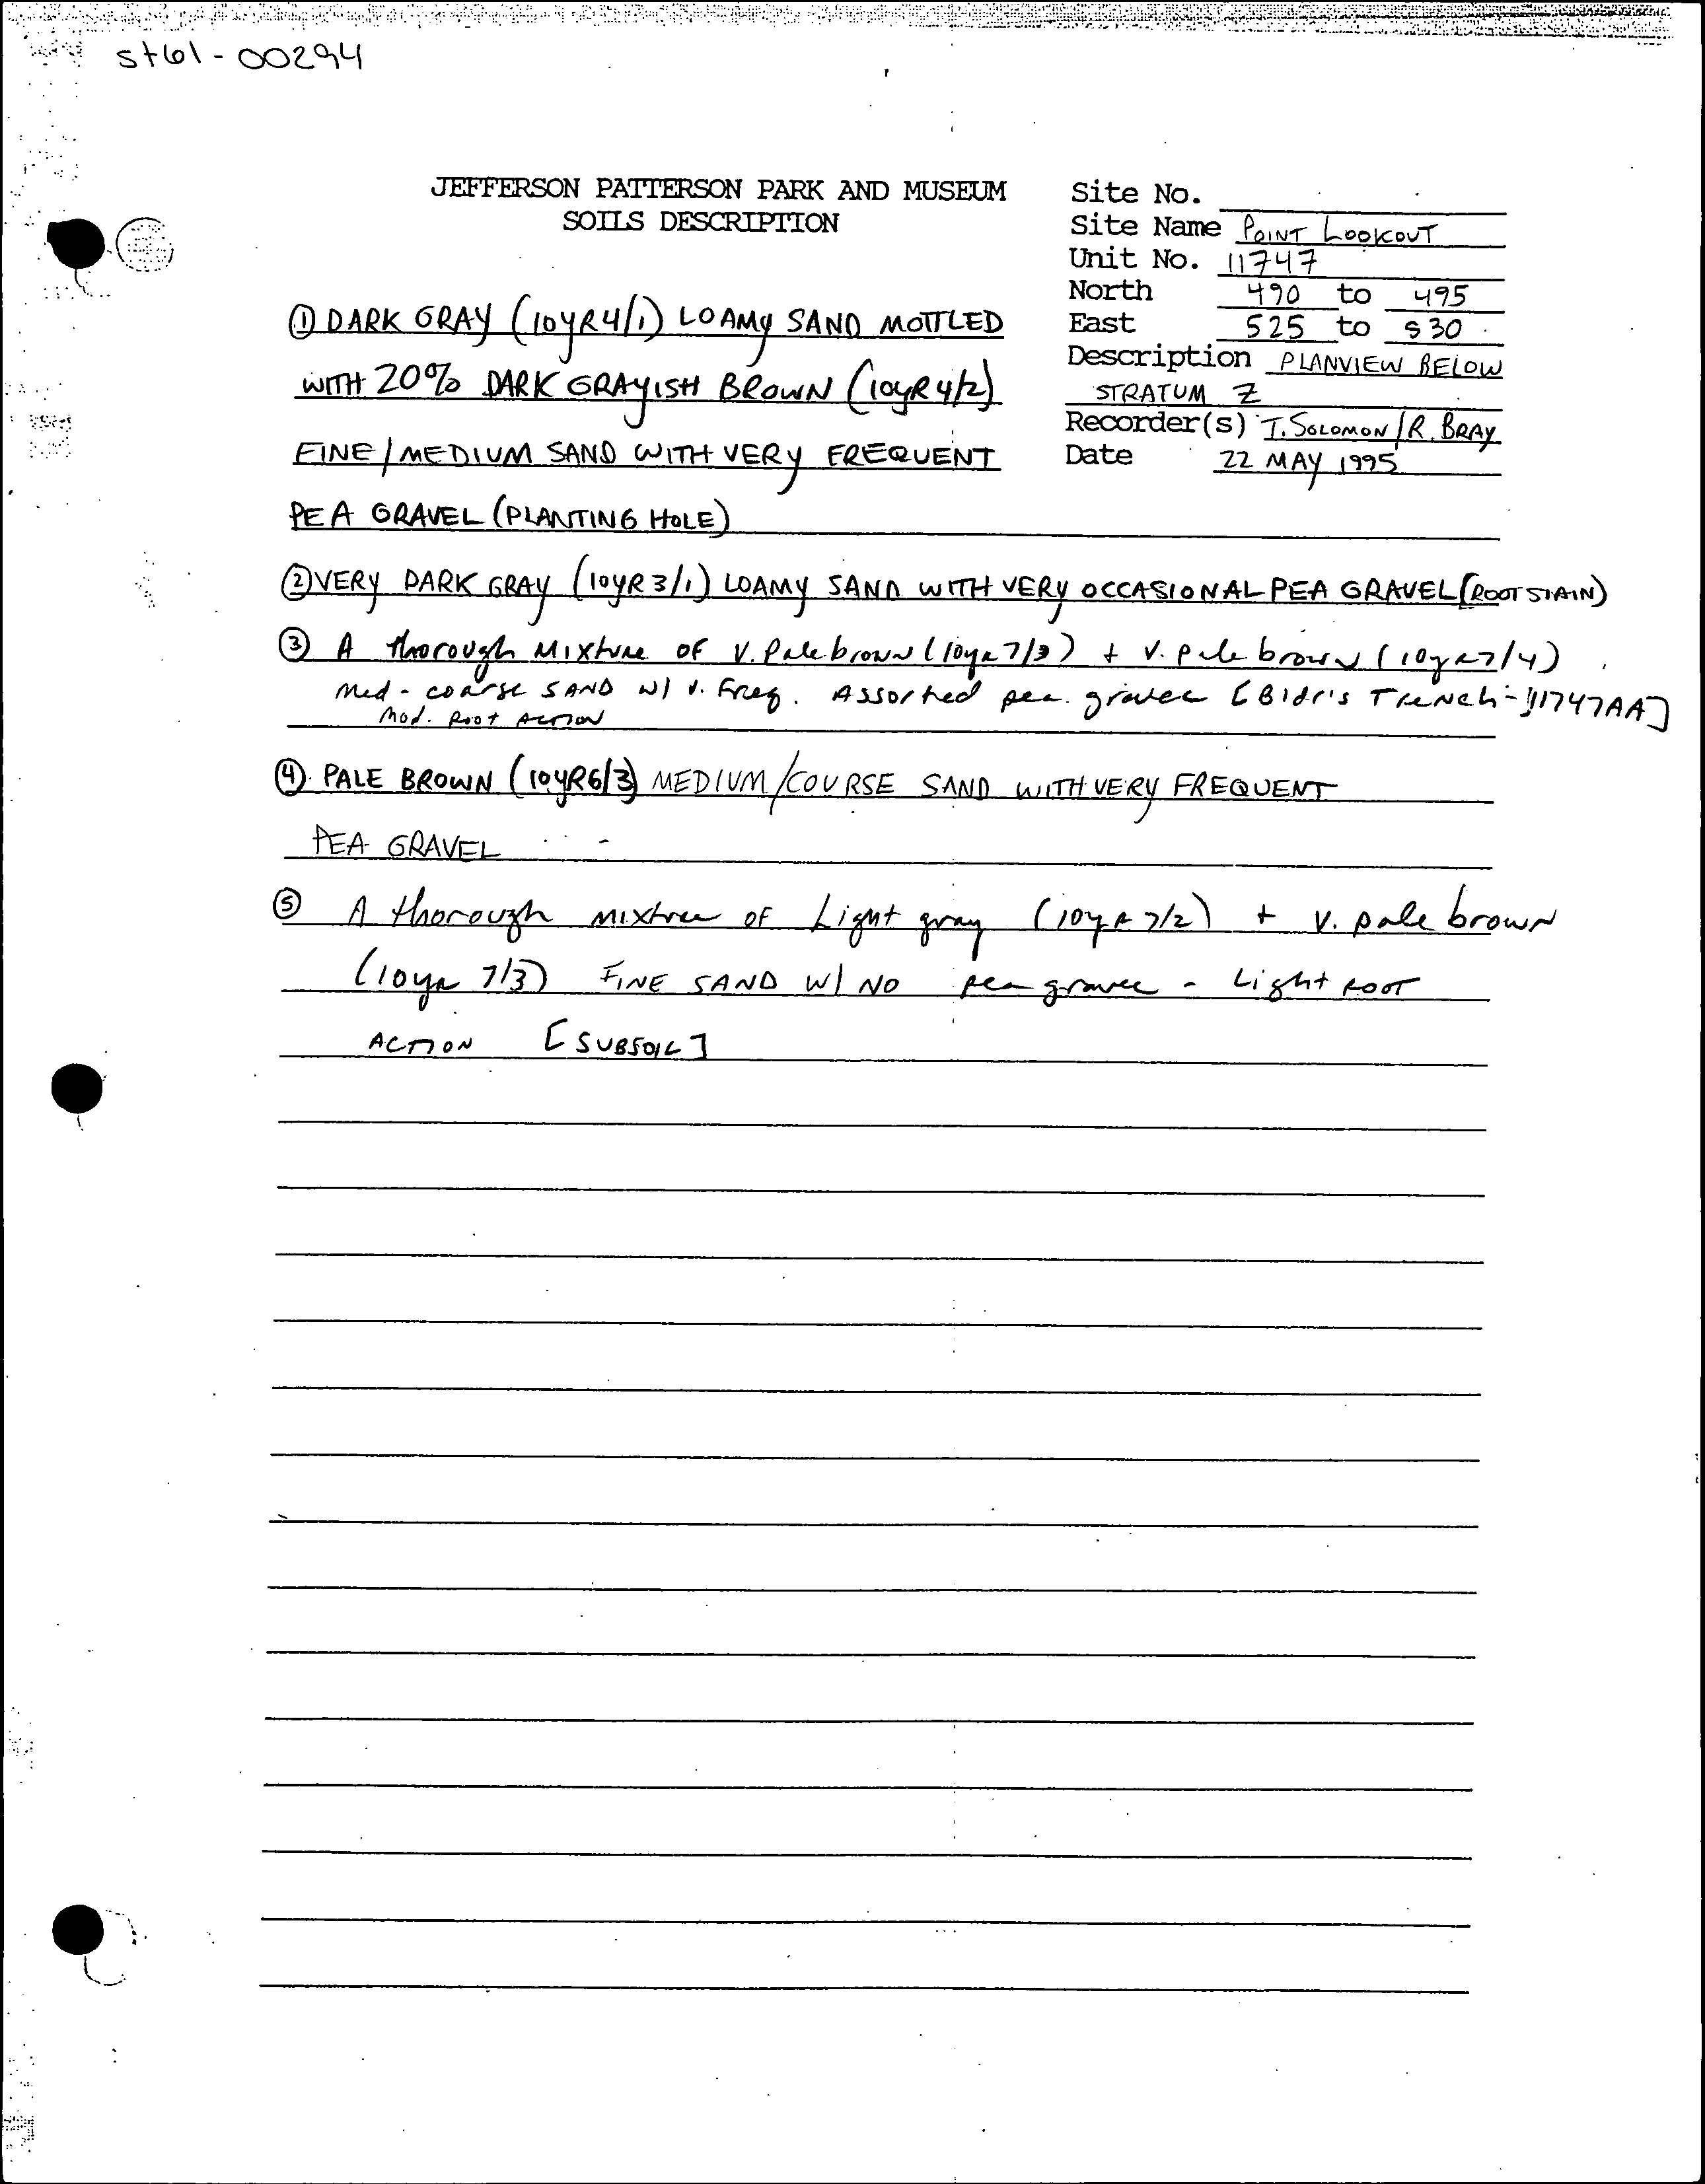 st61-00294
JEFFERSON PATTERSON PARK AND MUSEUM
SOILS DESCRIPTION
Site No.
Site Name POINT LOOKOUT
Unit No. 11747
North 490 to 495
East 525 to 530
Description PLANVIEW BELOW
STRATUM Z
Recorder(s) T. SOLOMON / R. BRAY
Date 22 MAY 1995
① DARK GRAY (10YR4/1) LOAMY SAND MOTTLED
WITH 20% DARK GRAYISH BROWN (10YR 4/2)
FINE/MEDIUM SAND WITH VERY FREQUENT
PEA GRAVEL (PLANTING HOLE)
② VERY DARK GRAY (10YR 3/1) LOAMY SAND WITH VERY OCCASIONAL PEA GRAVEL (ROOT STAIN)
③ A thorough Mixture OF V. Pale brown (10yr 7/3) + V. pale brown (10yr 7/4)
Med - coarse SAND W/ V. Freq. Assorted pea gravel [Bldr's Trench - 11747AA]
Mod. Root Action
④ PALE BROWN (10YR6/3) MEDIUM/COURSE SAND WITH VERY FREQUENT
PEA GRAVEL
⑤ A thorough mixture OF Light gray (10yr 7/2) + V. pale brown
(10yr 7/3) FINE SAND W/ NO pea gravel - Light ROOT
ACTION [SUBSOIL]